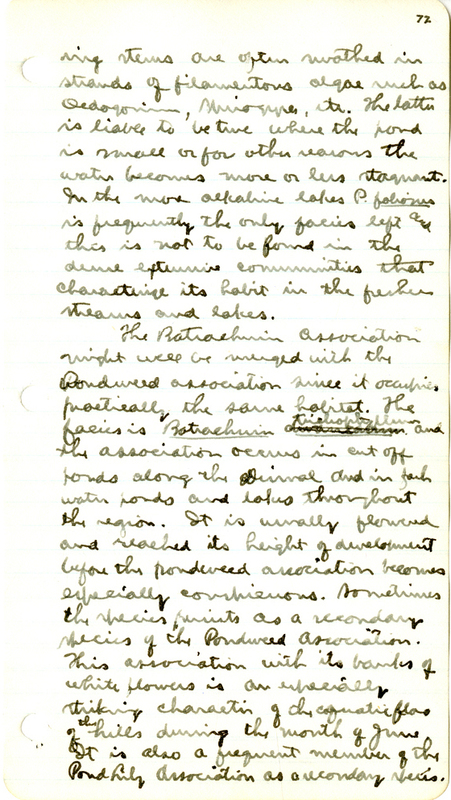 72
ing stems are often swathed in
strands of filamentous algae such as
Oedogonium, Spirogyra, etc. The latter
is liable to be true where the pond
is small or for other reasons the
water becomes more or less stagnant.
In the more alkaline lakes P. foliosus
is frequently the only facies left and
this is not to be found in the
dense extensive communities that
characterize its habit in the fresher
streams and lakes.
The Batrachium Association
might well be merged with the
Pondweed association since it occupies
practically the same habitat. The
facies is Batrachium trichophyllum and
the association occurs in cut off
ponds along the Dismal and in fresh
water ponds and lakes throughout
the region. It is usually flowered
and reached its height of development
before the pondweed association becomes
especially conspicuous. Sometimes
the species persists as a secondary
species of the Pondweed Association.
This association with its banks of
white flowers is an especially
striking character of the aquatic flora
of the hills during the month of June
It is also a frequent member of the
Pond Lily Association as a secondary species.